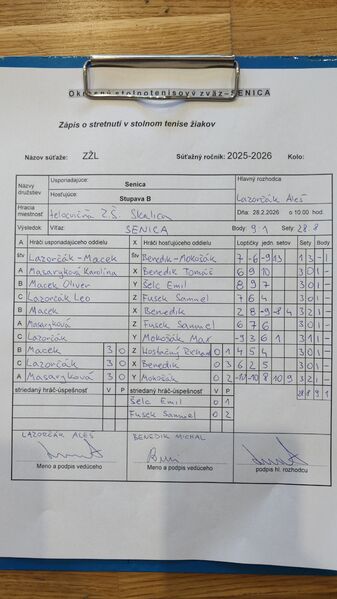 Okresný stolnotenisový zväz – SENICA
Zápis o stretnutí v stolnom tenise žiakov
Názov súťaže: ZŽL Súťažný ročník: 2025-2026 Kolo:
Názov družstiev Usporiadajúce: Senica Hlavný rozhodca
Hosťujúce: Stupava B Lazorčák Aleš
Hracia miestnosť telocvičňa Z.Š. Skalica Dňa: 28.2.2026 o 10.00 hod.
Výsledok Víťaz: SENICA Body: 9:1 Sety: 28:8
A Hráči usporiadajúceho oddielu X Hráči hosťujúceho oddielu Loptičky jedn. setov Sety Body
štv Lazorčák - Macek štv Benedik - Mokošák 7 -6 -9 13 1 3 - 1
A Masaryková Karolína X Benedik Tomáš 6 9 10 3 0 1 -
B Macek Oliver Y Šelc Emil 8 9 7 3 0 1 -
C Lazorčák Leo Z Fusek Samuel 7 6 4 3 0 1 -
B Macek X Benedik 2 8 -9 -8 4 3 2 1 -
A Masaryková Z Fusek Samuel 6 7 6 3 0 1 -
C Lazorčák Y Mokošák Max -9 3 6 1 3 1 1 -
B Macek 3 0 Z Hostačný Richard 0 1 4 5 4 3 0 1 -
C Lazorčák 3 0 X Benedik 0 3 6 2 5 3 0 1 -
A Masaryková 3 0 Y Mokošák 0 2 -12 -10 8 10 9 3 2 1 -
striedaný hráč-úspešnosť V P striedaný hráč-úspešnosť V P 28 8 9 1
Šelc Emil 0 1
Fusek Samuel 0 2
LAZORČÁK ALEŠ BENEDIK MICHAL
Meno a podpis vedúceho Meno a podpis vedúceho podpis hl. rozhodcu